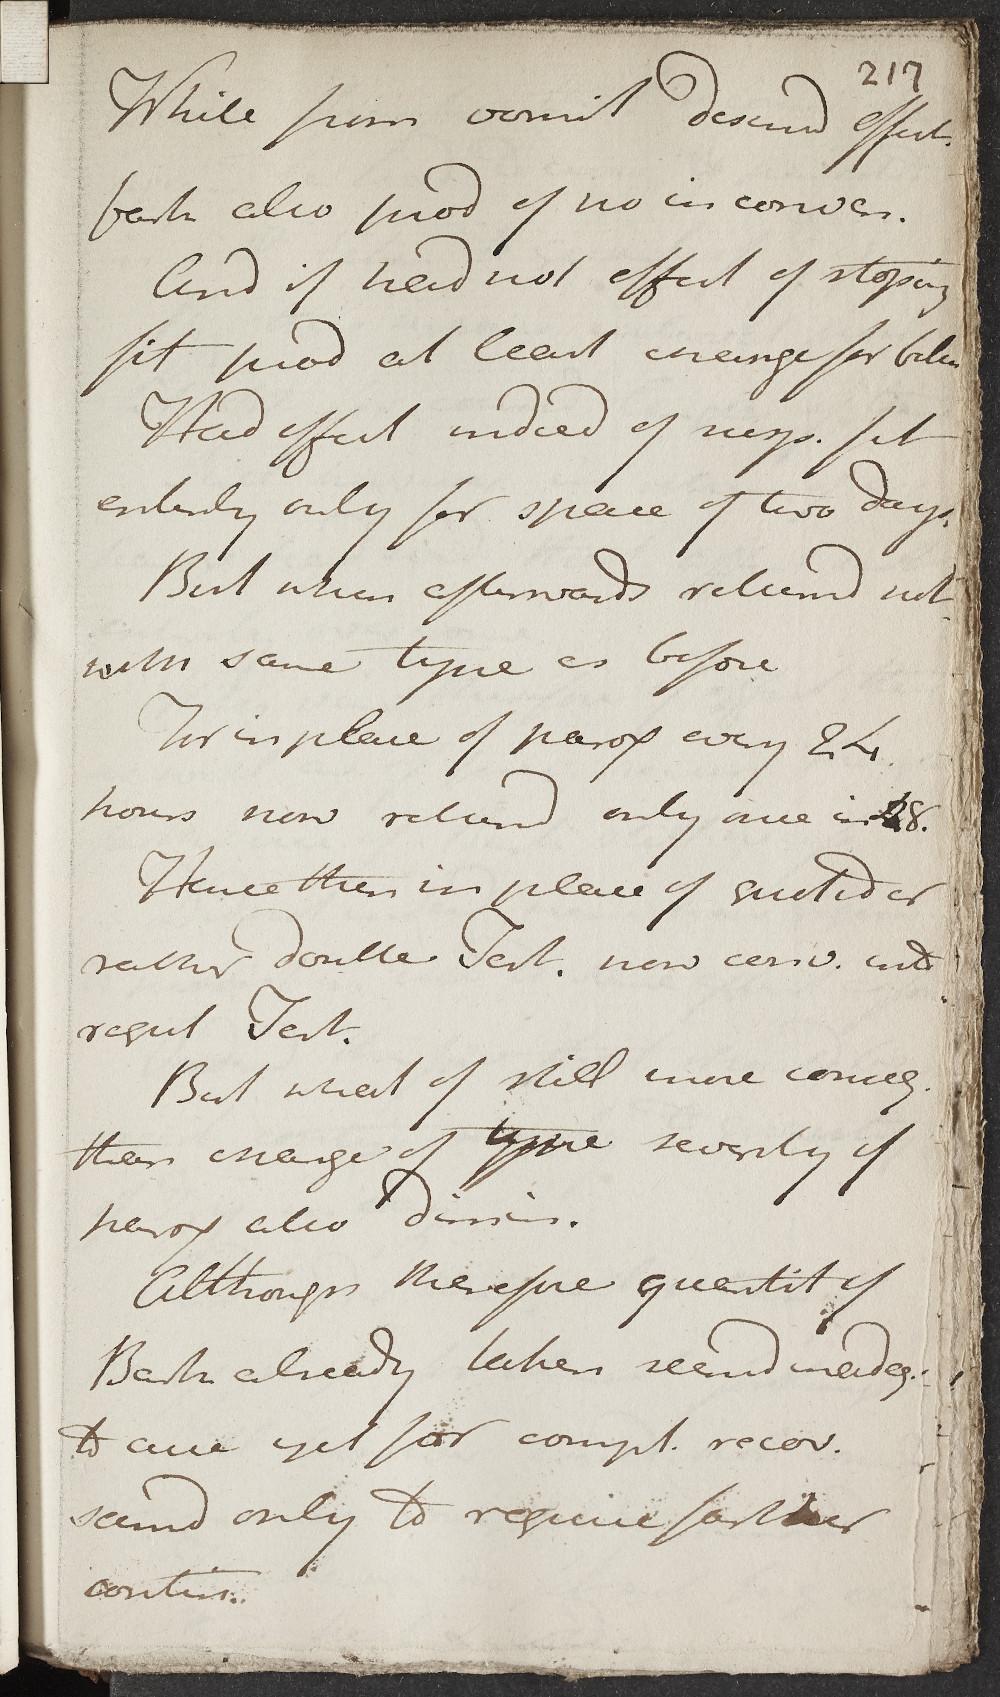 217
While from vomit desird effect.
bark also prod of no inconven.
And if head not effect of stoping
fit prod at least change for better
Had effect indeed of susp. fit
entirely only for space of two days.
But when afterwards returnd not
with same type as before
For in place of parox every 24
hours now returnd only one in 48.
Hence then in place of quotid or
rather double Tert. now conv. into
regul Tert.
But what of still more conseq.
than change of type severity of
parox also dimin.
Although therefore quantity of
Bark already taken seemd inadeq.
to cure yet for compl. recov.
seemd only to require farther
contin.